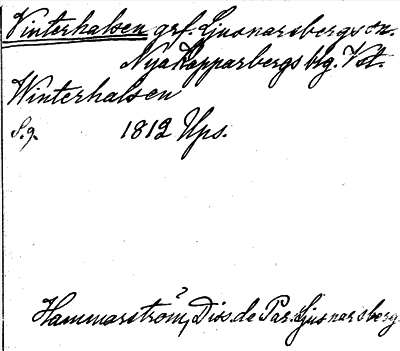 Vinterhalsen grf. Ljusnarsbergs sn.
Nya Kopparbergs blg. Vstm.
Winterhalsen
S. 9. 1812 Ups.
Hammarström, Diss. de Par. Ljusnarsberg